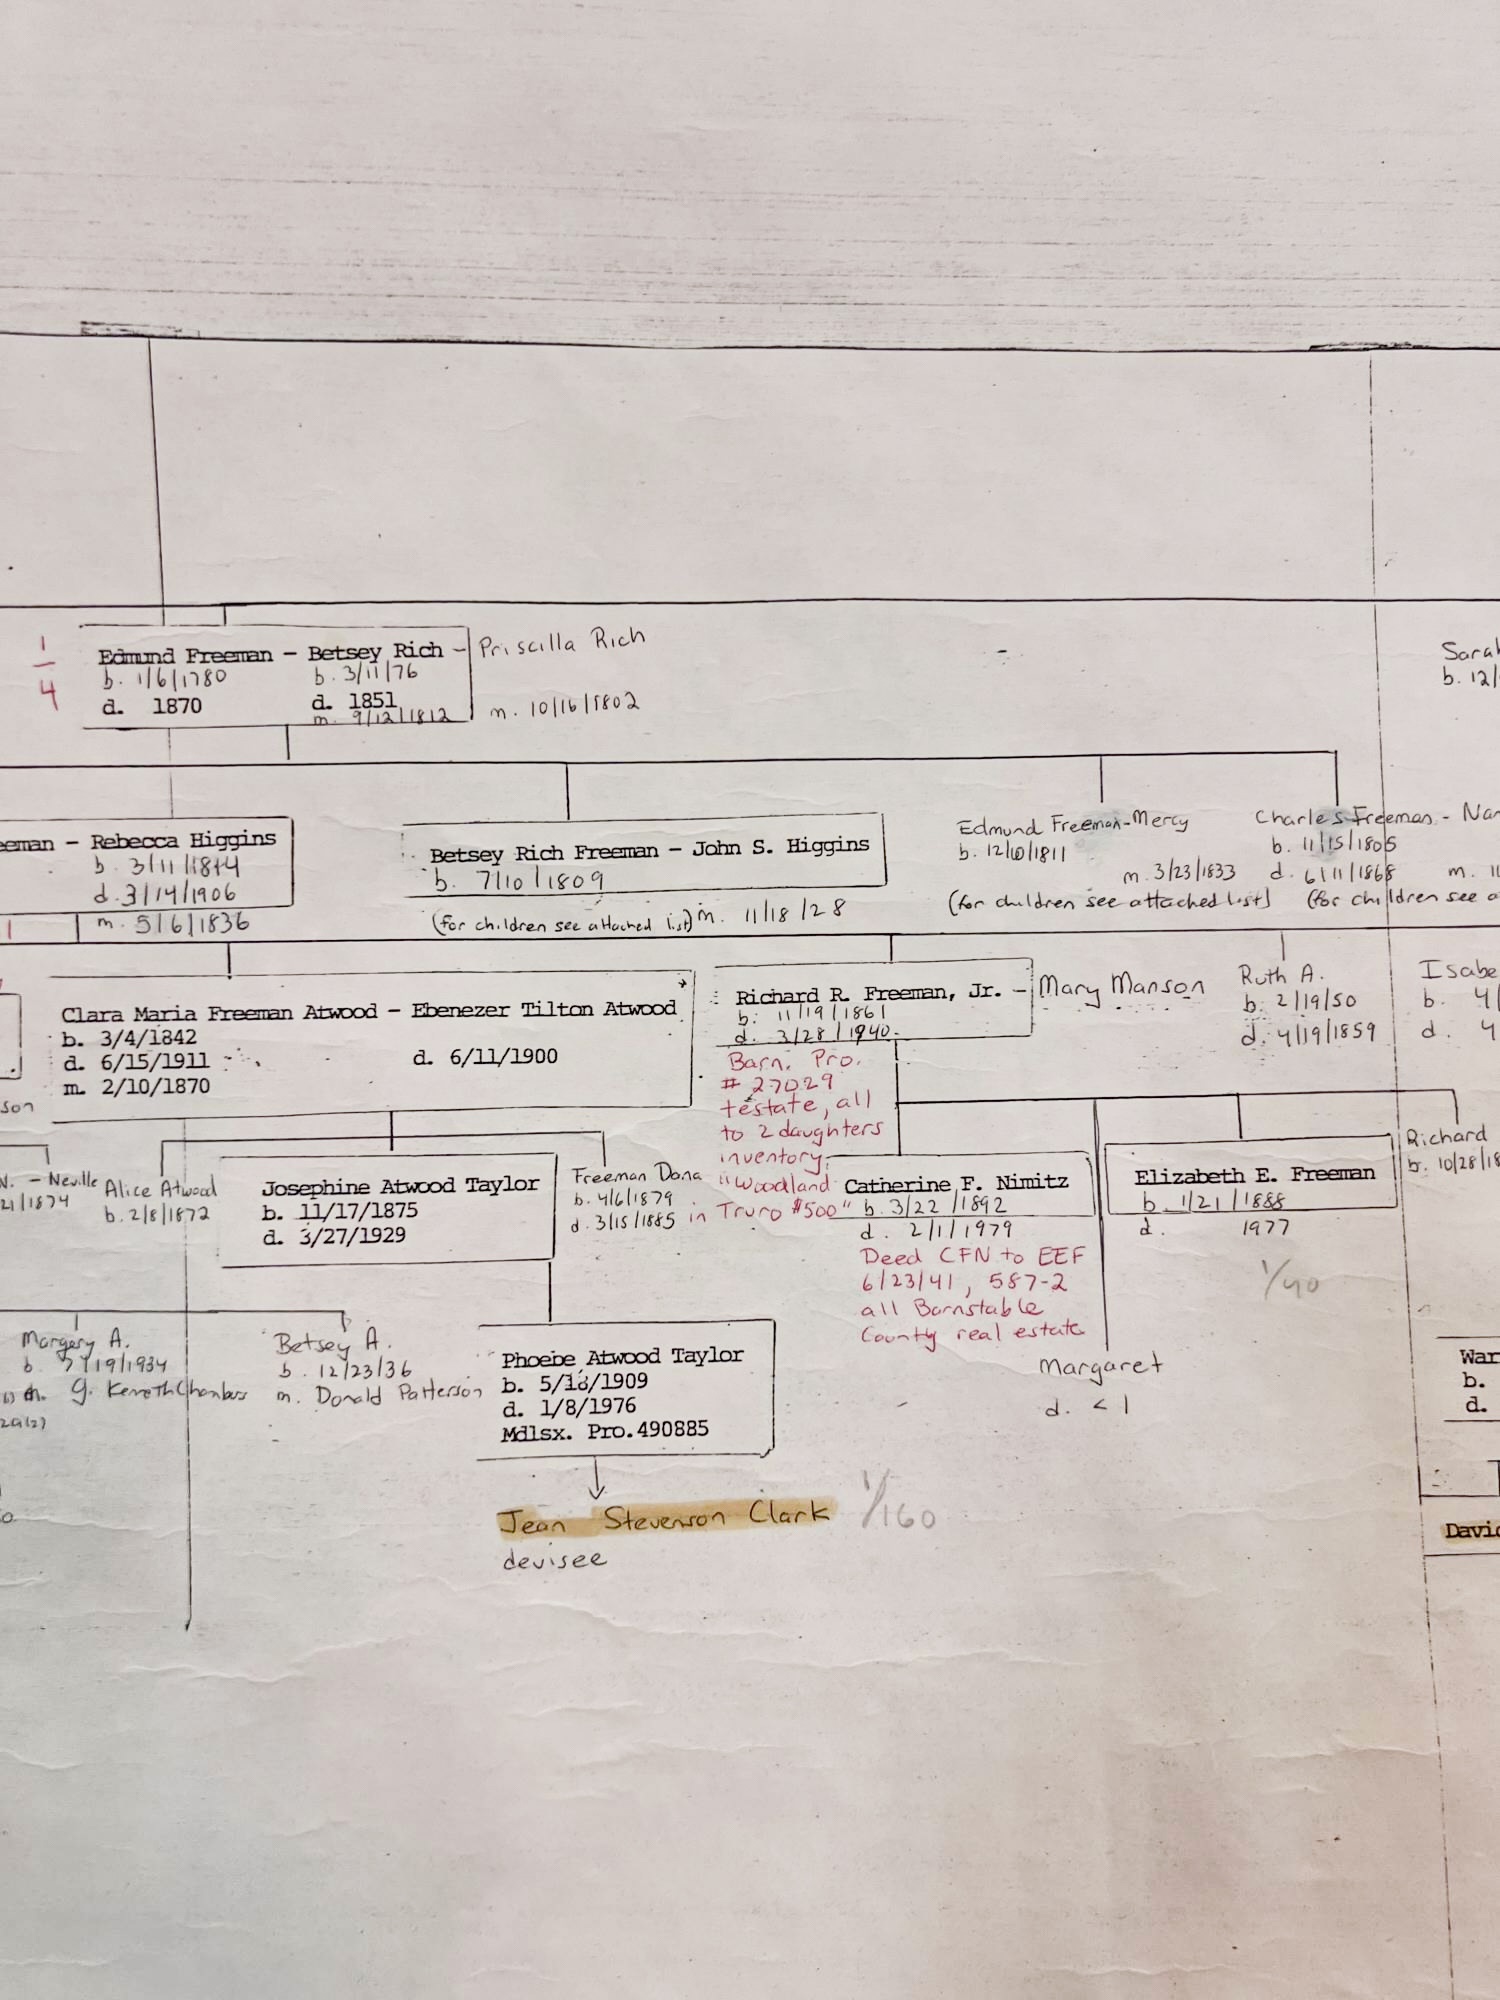 1
4
Edmund Freeman - Betsey Rich - Priscilla Rich
b. 1/6/1780
b. 3/11/76
d. 1870
d. 1851
m. 9/12/1812
m. 10/16/1802
Sarah
b. 12/
eeman - Rebecca Higgins
b. 3/11/1814
d. 3/14/1906
m. 5/6/1836
Betsey Rich Freeman - John S. Higgins
b. 7/10/1809
(for children see attached list) m. 11/18/28
Edmund Freeman-Mercy
b. 12/10/1811
m. 3/23/1833
(for children see attached list)
Charles Freeman - Nan
b. 11/15/1805
d. 6/11/1868 m. 11
(for children see a
Clara Maria Freeman Atwood - Ebenezer Tilton Atwood
b. 3/4/1842
d. 6/15/1911
d. 6/11/1900
m. 2/10/1870
Richard R. Freeman, Jr. - Mary Manson
b. 11/19/1861
d. 3/28/1940
Barn. Pro.
# 27029
testate, all
to 2 daughters
inventory,
"Woodland
in Truro $500"
Ruth A.
b. 2/19/50
d. 4/19/1859
Isabe
b. 4/
d. 4
son
N. - Neville
21/1874
Alice Atwood
b. 2/8/1872
Josephine Atwood Taylor
b. 11/17/1875
d. 3/27/1929
Freeman Dana
b. 4/6/1879
d. 3/15/1885
Catherine F. Nimitz
b. 3/22/1892
d. 2/1/1979
Deed CFN to EEF
6/23/41, 587-2
all Barnstable
County real estate
Elizabeth E. Freeman
b. 1/21/1888
d. 1977
1/40
Richard
b. 10/28/18
Margery A.
b. 7/19/1934
m. G. Kenneth Chambers
Betsey A.
b. 12/23/36
m. Donald Patterson
Phoebe Atwood Taylor
b. 5/18/1909
d. 1/8/1976
Mdlsx. Pro.490885
Margaret
d. < 1
War
b.
d.
Jean Stevenson Clark 1/160
devisee
David